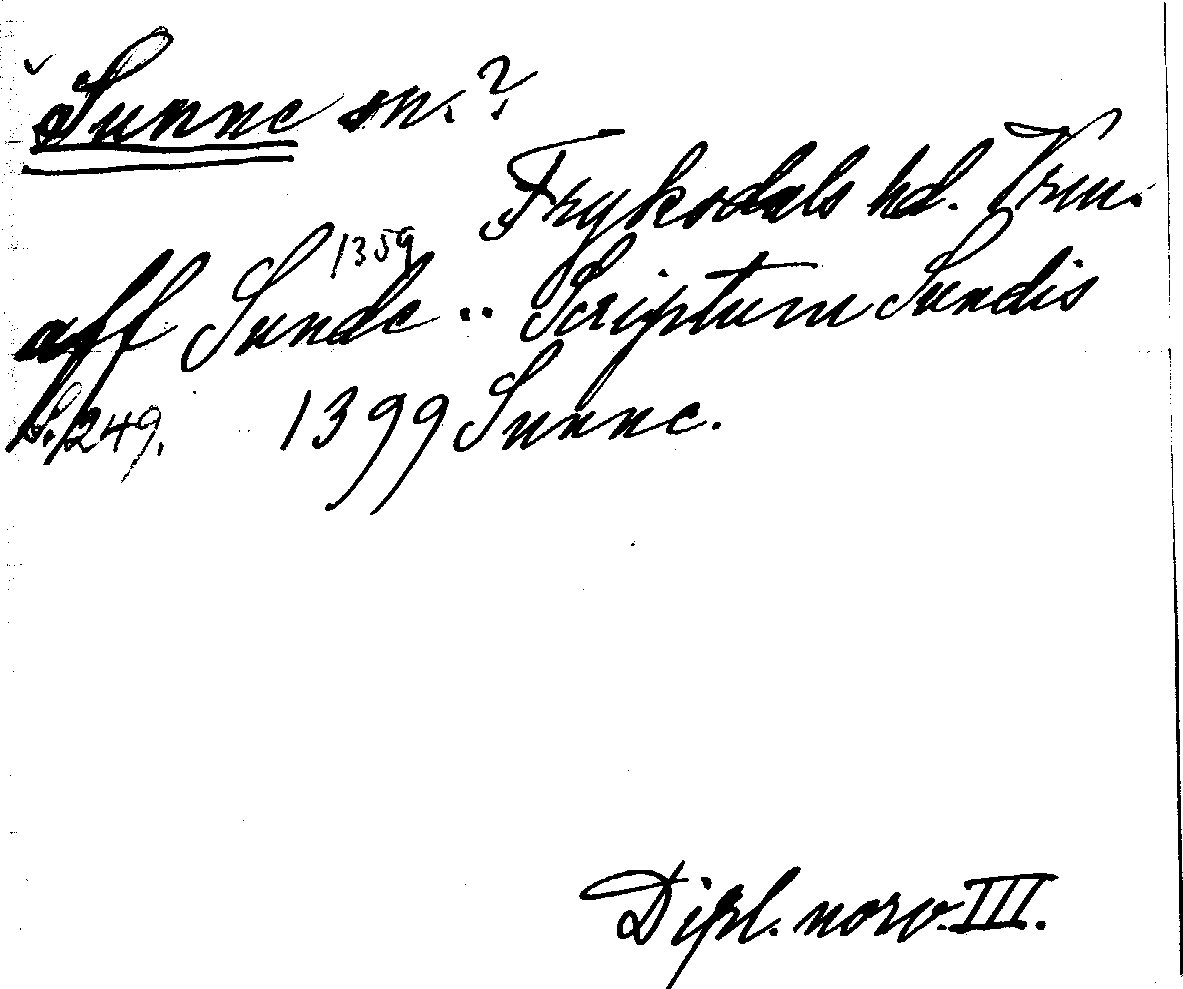 Sunne sn.?
Fryksdals hd. Vrm.
1359
aff Sunde .. Scriptum Sundis
S. 249. 1399 Sunne.
Dipl. norv. III.